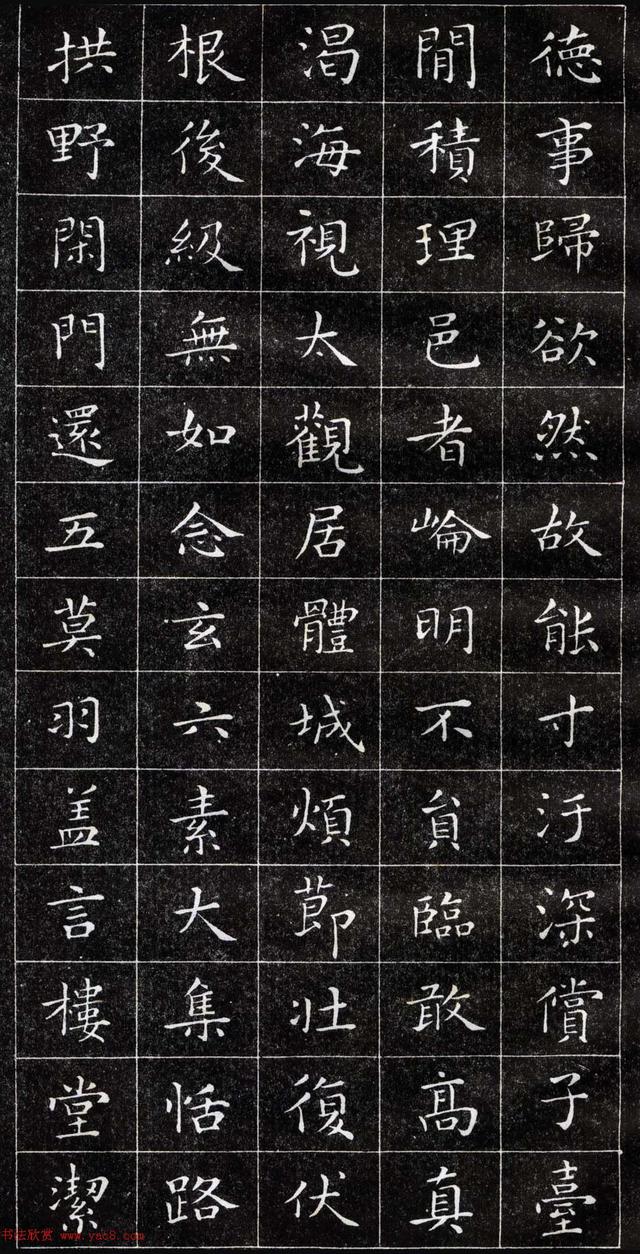 德事歸欲然故能寸汙深償子臺
閒積理邑者崘明不負臨敢高真
渴海視太觀居體城煩節壯復伏
根後級無如念玄六素大集恬路
拱野閑門還五莫羽盖言樓堂潔
书法欣赏 www.yac8.com